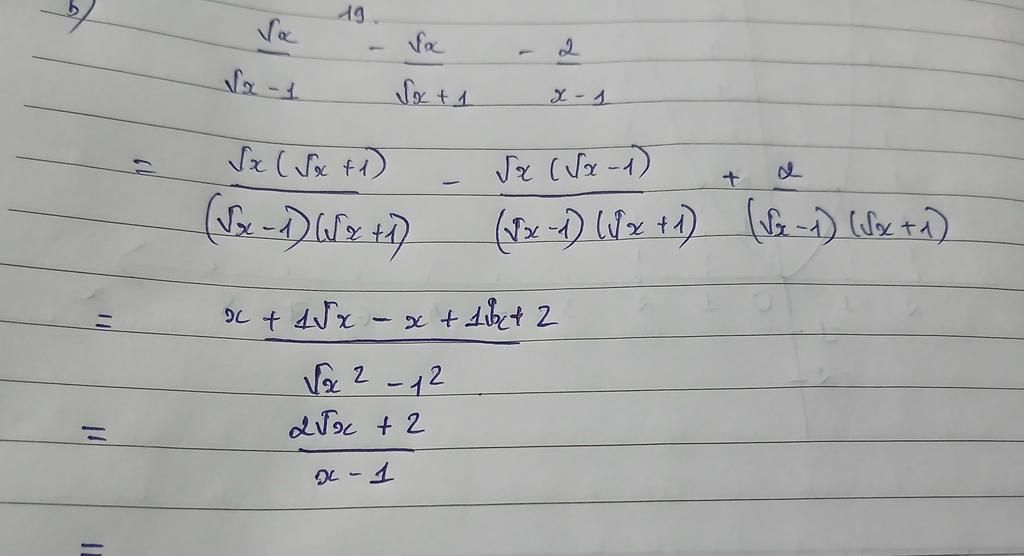 b) 19.
√x/(√x - 1) - √x/(√x + 1) - 2/(x - 1)
= √x(√x + 1)/((√x - 1)(√x + 1)) - √x(√x - 1)/((√x - 1)(√x + 1)) + 2/((√x - 1)(√x + 1))
= (x + 1√x - x + 1√x + 2)/(√x² - 1²)
= (2√x + 2)/(x - 1)
=